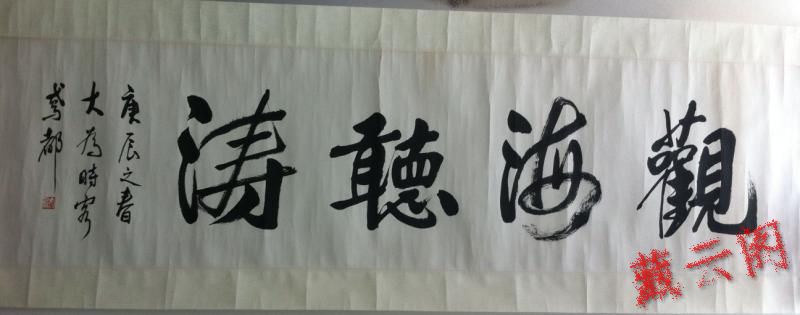 觀海聽涛
庚辰之春
大为時客
鸢都
藏云阁